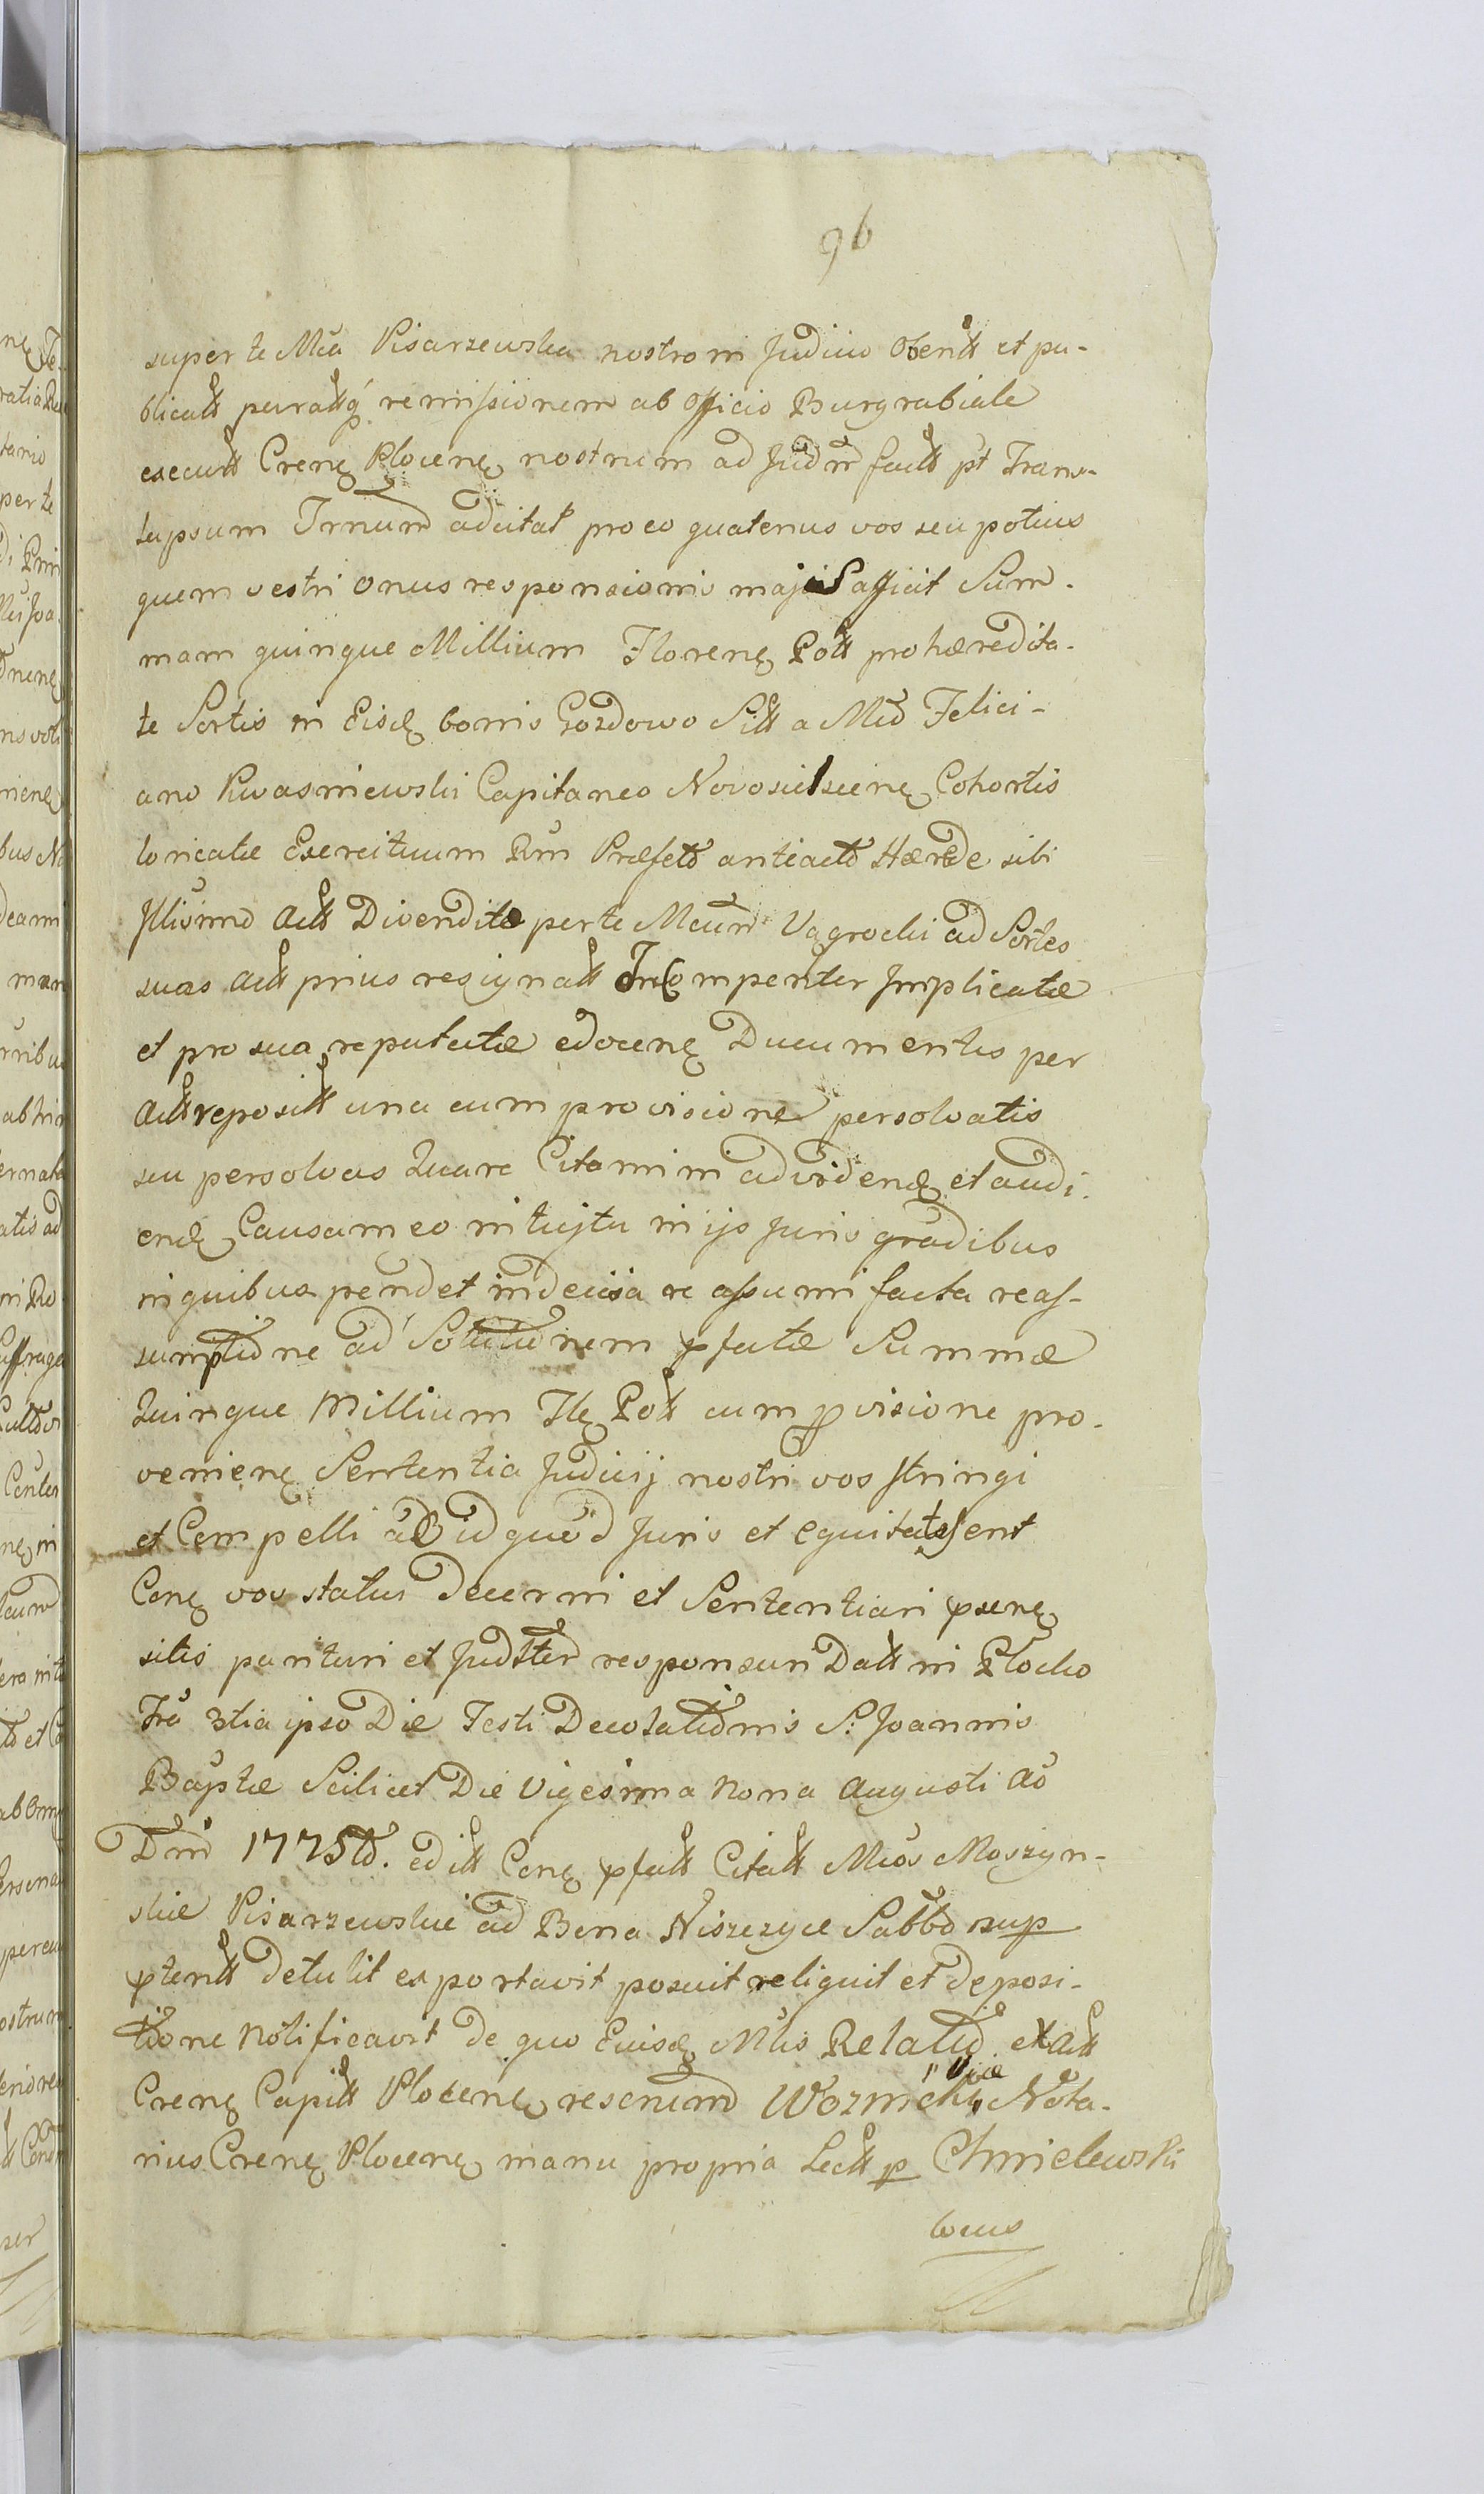 96
super te Mcã Pisarzewska nostro in Judicio Obtentt et pu-
blicatt peractq̃ remissionem ab Officio Burgrabiale
execuntt Crenę Plocenę nostrum ad Judm̃ factt pt Trans-
lapsum Trnum̃ adcitat pro eo quatenus vos seu potius
quem vestri onus responsionis majis afficit Sum̃-
mam quinque Millium Florenę Poll pro hæredita-
te Sortis in Eisdę bonis Gozdowo Sitt a Mcõ Felici-
ano Kwasniewski Capitaneo Novosielscenę Cohortis
loricatæ Exercituum Rm̃ Præfecto antiacto Hærede sibi
Illusimo Actt Divenditæ per te Mcum̃ Vągrocki ad Sortes
suas Actt prius resignatt Incompenter Implicatæ
et pro sua reputatæ edocenę Documentis per
Actt reposítt una cum provisione persolvatis
seu persolvas Quare Citamini ad videndę et audi-
endę Causam eo intujtu in ijs Juris gradibus
in quibus pendet indecisa re assumi facta reas-
sumptione ad Solutionem pfatæ Summæ
Quinque Millium Flę Poll cum provisione pro-
venienę Sententia Judicij nostri vos stringi
et Compelli ad id quod Juris et equitatis ent
Conę vos status decerni et Sententiari psenę
sitis parituri et Judlter responsuri Datt in Płocko
Frã 3tia ipso Die Festi Decolationis S: Joannis
Baptæ Scilicet Die Vigesima Nona Augusti Aõ
Dm̃ 1775tõ. editt Conę pfatt Citatt Mcõs Moszyn-
skie Pisarzewskie ad Bona Niszczyce Sabbtõ sup
ptentt detulit exportavit posuit reliquit et deposi-
tione Notificavit de quo Eiusdę Mtlis Relatio. ex Actt
Crenę Capitt Plocenę rescriptm̃ Wozmicki Vice Nota-
rius Crenę Plocenę manu propria Lectt p Chmielewski
locus